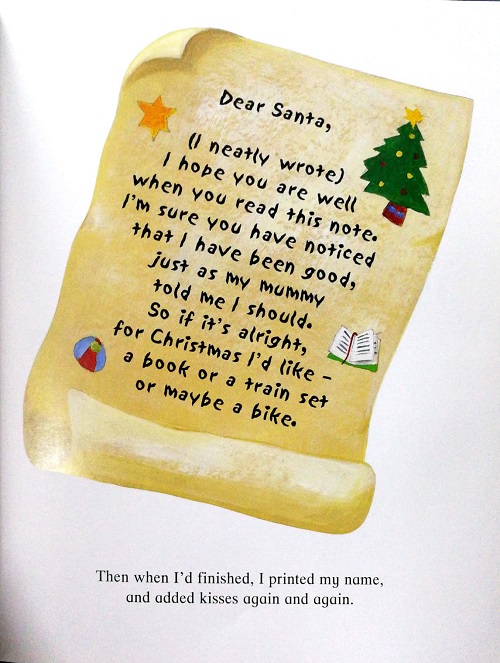 Dear Santa,
(I neatly wrote)
I hope you are well
when you read this note.
I'm sure you have noticed
that I have been good,
just as my mummy
told me I should.
So if it's alright,
for Christmas I'd like –
a book or a train set
or maybe a bike.
Then when I'd finished, I printed my name,
and added kisses again and again.